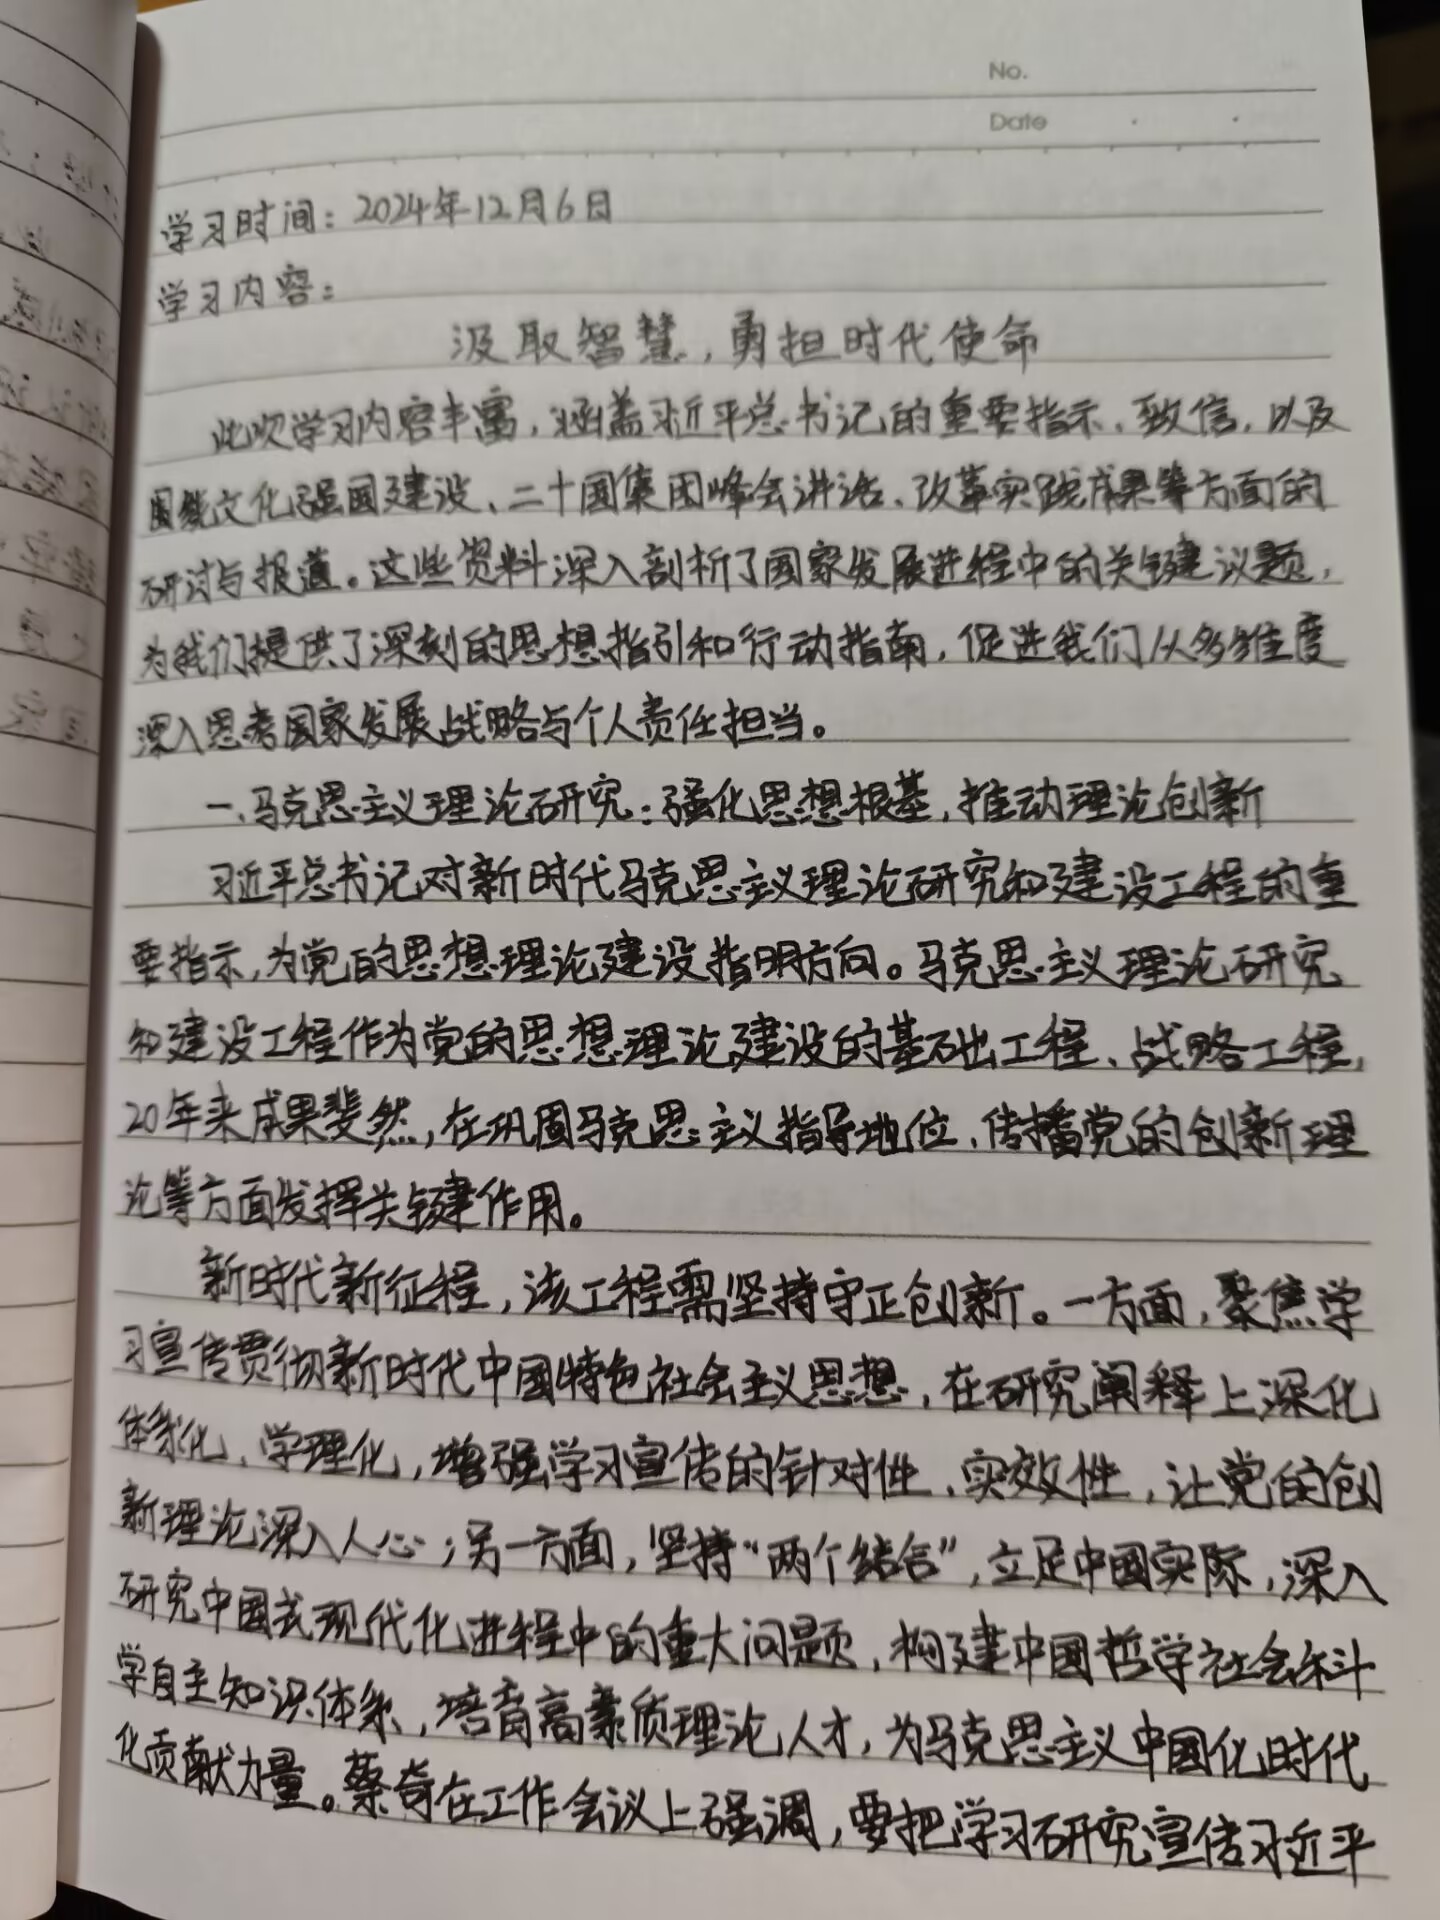 No.
Date
学习时间：2024年12月6日
学习内容：
汲取智慧，勇担时代使命
此次学习内容丰富，涵盖习近平总书记的重要指示、致信，以及
围绕文化强国建设、二十国集团峰会讲话、改革实践成果等方面的
研讨与报道。这些资料深入剖析了国家发展进程中的关键议题，
为我们提供了深刻的思想指引和行动指南，促进我们从多维度
深入思考国家发展战略与个人责任担当。
一、马克思主义理论研究：强化思想根基，推动理论创新
习近平总书记对新时代马克思主义理论研究和建设工程的重
要指示，为党的思想理论建设指明方向。马克思主义理论研究
和建设工程作为党的思想理论建设的基础工程、战略工程，
20年来成果斐然，在巩固马克思主义指导地位、传播党的创新理
论等方面发挥关键作用。
新时代新征程，该工程需坚持守正创新。一方面，聚焦学
习宣传贯彻新时代中国特色社会主义思想，在研究阐释上深化
体系化、学理化，增强学习宣传的针对性、实效性，让党的创
新理论深入人心；另一方面，坚持“两个结合”，立足中国实际，深入
研究中国式现代化进程中的重大问题，构建中国哲学社会科
学自主知识体系，培育高素质理论人才，为马克思主义中国化时代
化贡献力量。蔡奇在工作会议上强调，要把学习研究宣传习近平